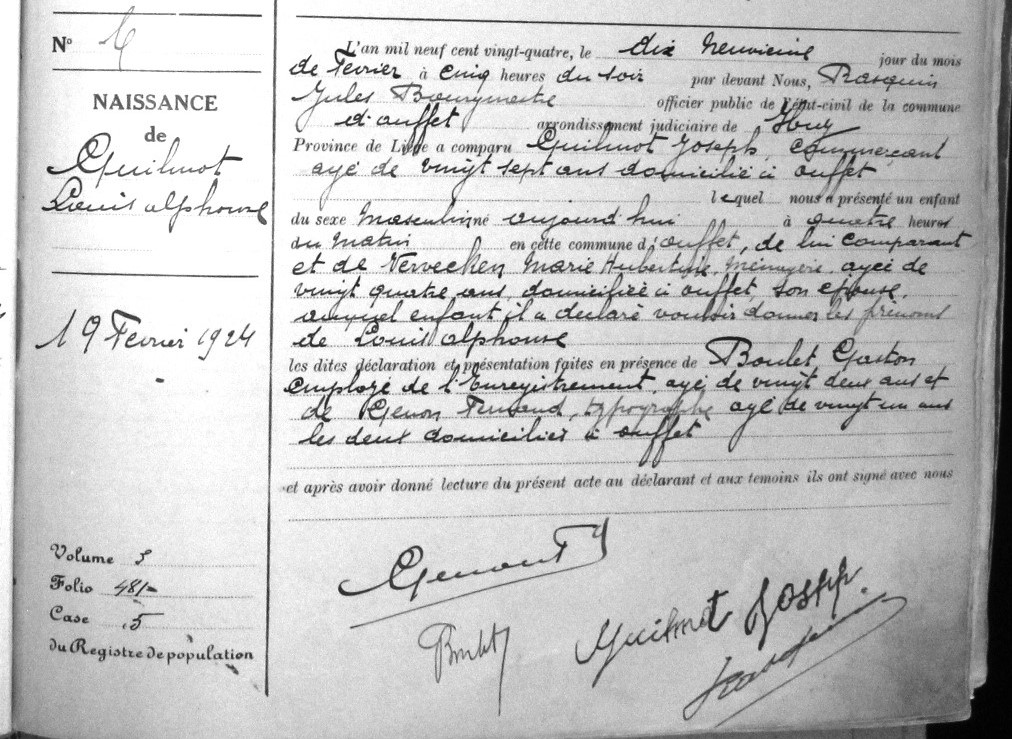 N°
NAISSANCE
de
Guilmot
Louis alphonse
19 Fevrier 1924
Volume 5
Folio 481-
Case 5
du Registre de population
L'an mil neuf cent vingt-quatre, le dix neuvieme jour du mois
de Fevrier à cinq heures du soir par devant Nous, Rasquin
Jules Bourgmestre officier public de l'état-civil de la commune
d'ouffet arrondissement judiciaire de Huy
Province de Liége a comparu Guilmot Joseph, commercant
agé de vingt sept ans domicilié à ouffet
lequel nous a présenté un enfant
du sexe Masculin né aujourd'hui à quatre heures
du Matin en cette commune d'ouffet, de lui comparant
et de Vervecken Marie Hubertine, Ménagère, agée de
vingt quatre ans, domiciliée à ouffet, son épouse,
auquel enfant il a declaré vouloir donner les prénoms
de Louis alphonse
les dites déclaration et présentation faites en présence de Boulet Gaston
employé de l'Enregistrement, agé de vingt deux ans et
de Genon Fernand, typographe agé de vingt un ans
les deux domiciliés à ouffet
et après avoir donné lecture du présent acte au déclarant et aux temoins ils ont signé avec nous
Genon F
Boulet
Guilmot Joseph